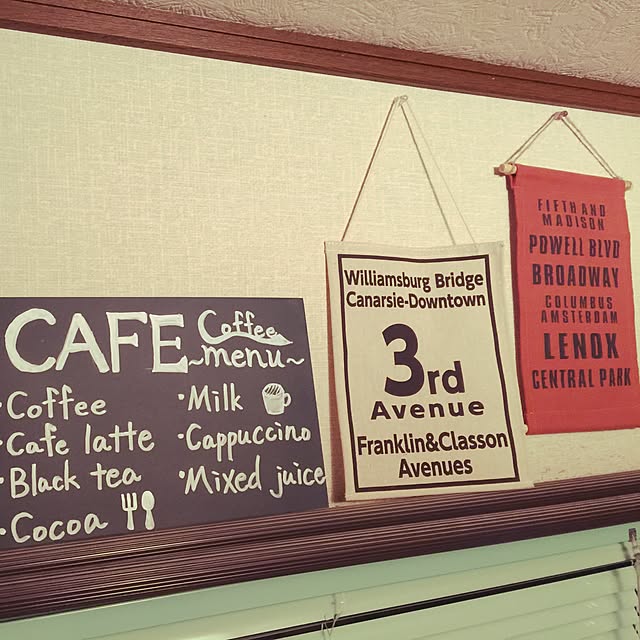 CAFE Coffee
~menu~
·Coffee
·Cafe latte
·Black tea
·Cocoa
·Milk
·Cappuccino
·Mixed juice
Williamsburg Bridge
Canarsie-Downtown
3rd
Avenue
Franklin&Classon
Avenues
FIFTH AND
MADISON
POWELL BLVD
BROADWAY
COLUMBUS
AMSTERDAM
LENOX
CENTRAL PARK